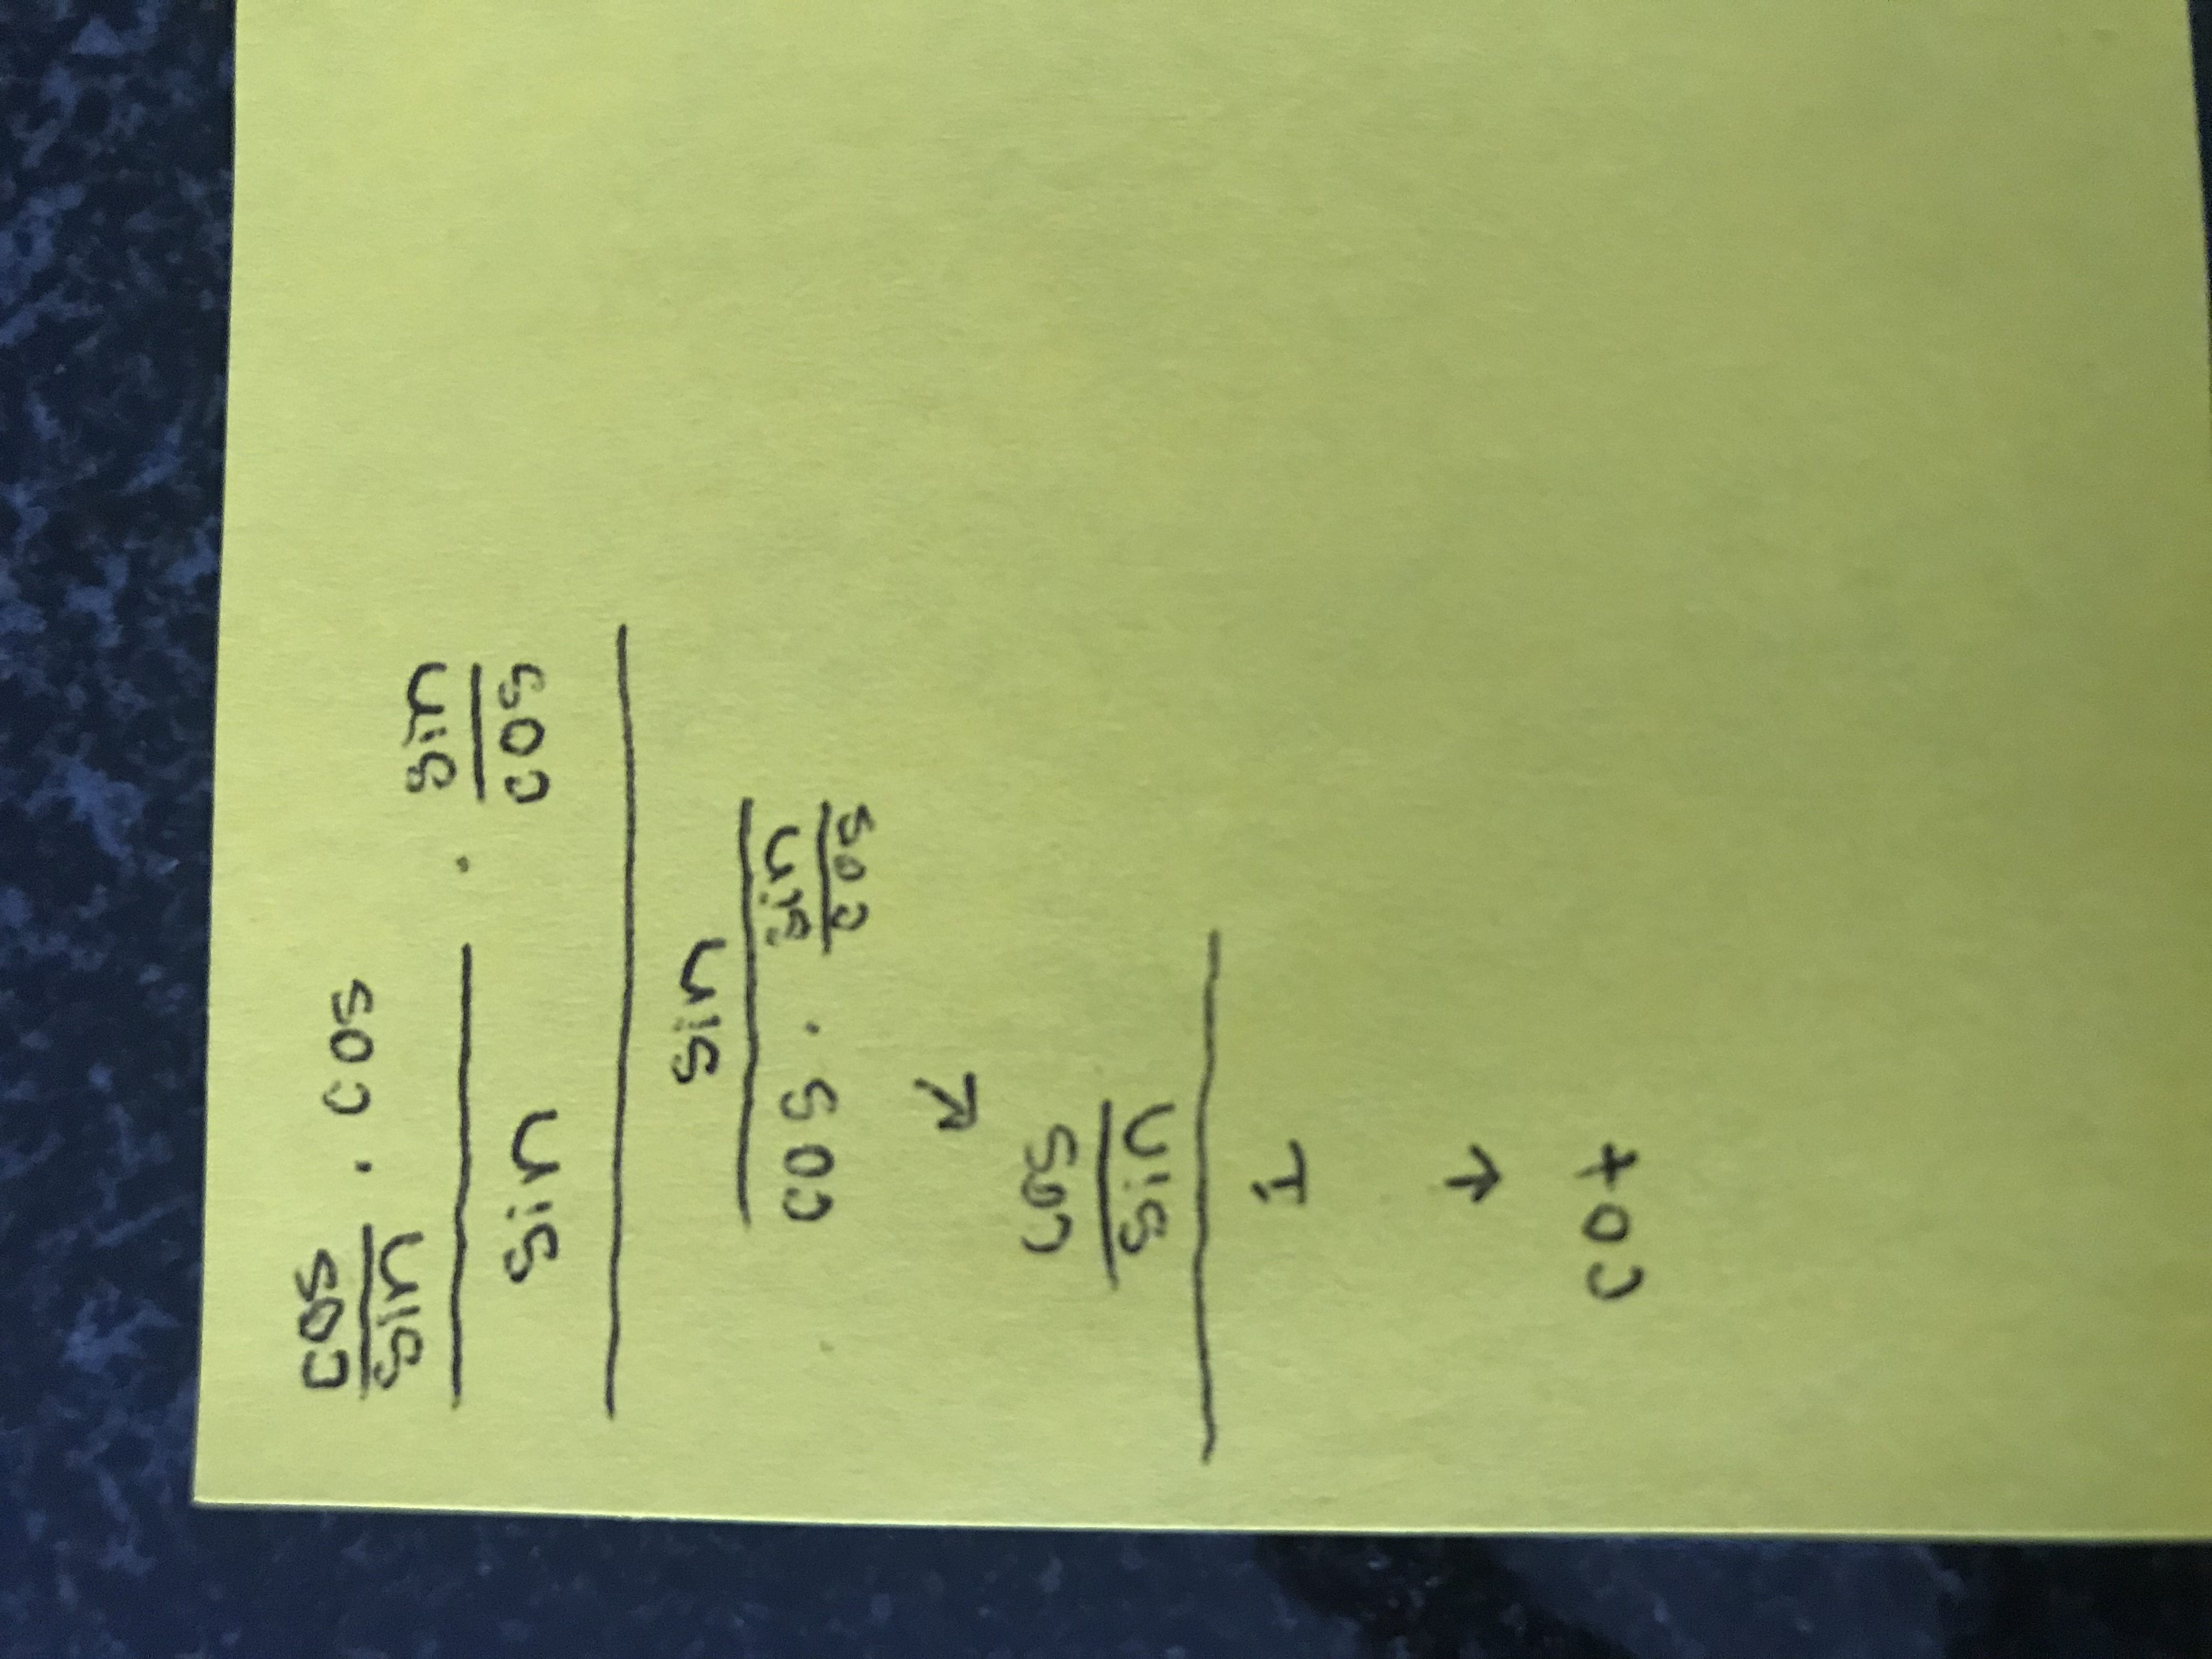 cos
sin · cos
sin · sin
cos
sin
cos · sin
cos
↓
cos
sin
1
↓
cot